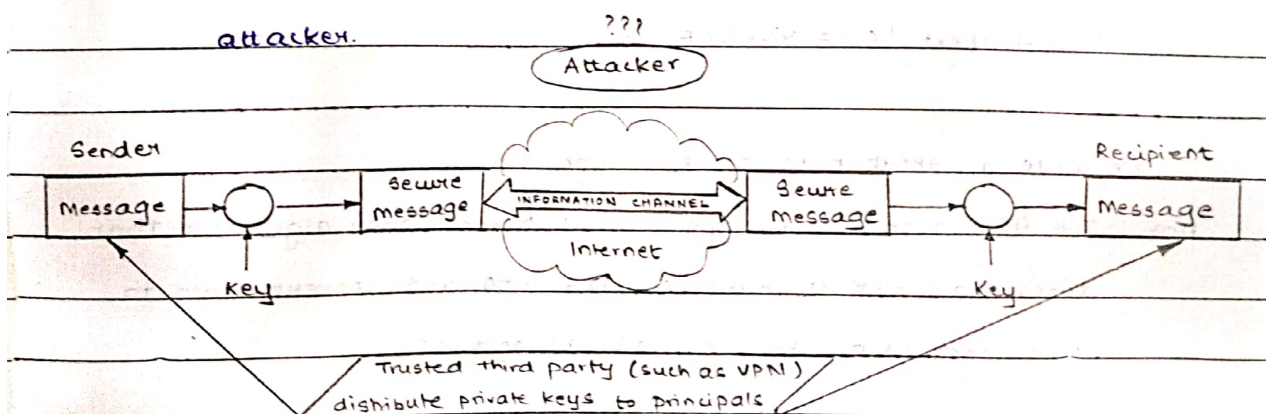 ???
attacker.
Attacker
Sender
Recipient
Message
Secure
message
INFORMATION CHANNEL
Secure
message
Message
Internet
Key
Key
Trusted third party (such as VPN)
distribute private keys to principals